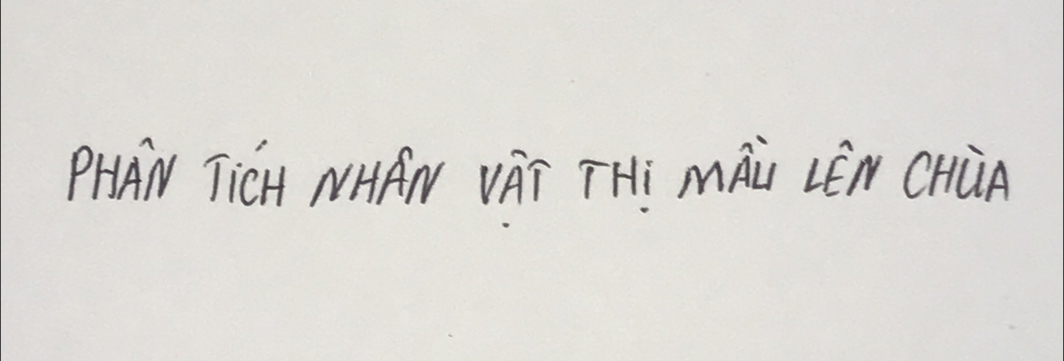 PHÂN TÍCH NHÂN VẬT THỊ MẦU LÊN CHÙA